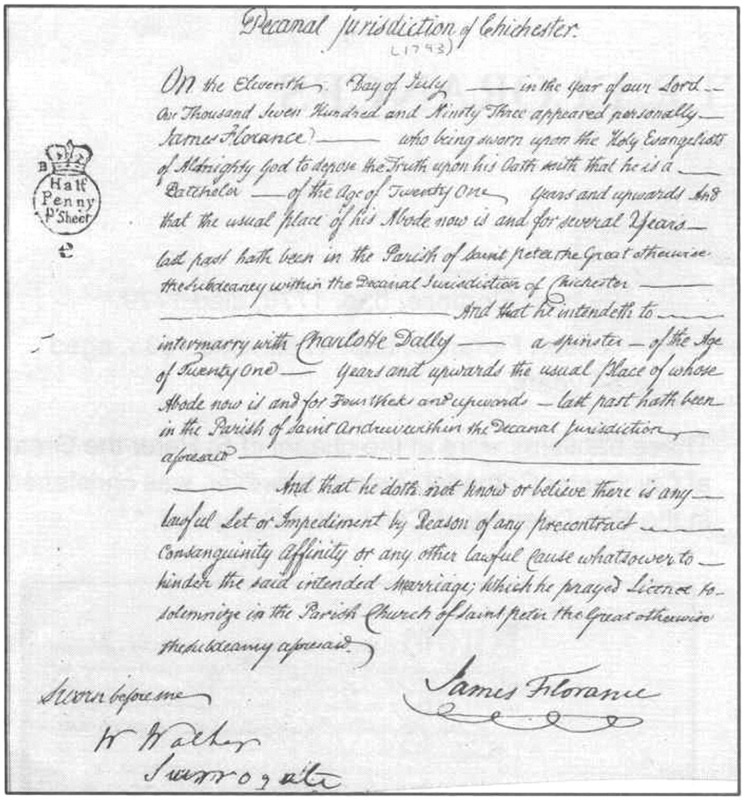 Decanal Jurisdiction of Chichester.
(1793)
On the Eleventh Day of July in the Year of our Lord
One Thousand Seven Hundred and Ninety Three appeared personally
James Florance who being sworn upon the Holy Evangelists
of Almighty God to depose the Truth upon his Oath saith that he is a
Batchelor of the Age of Twenty One Years and upwards And
that the usual place of his Abode now is and for several Years
last past hath been in the Parish of Saint Peter the Great otherwise
the Subdeanry within the Decanal Jurisdiction of Chichester
And that he intendeth to
intermarry with Charlotte Dally a Spinster of the Age
of Twenty One Years and upwards the usual Place of whose
Abode now is and for Four Weeks and upwards last past hath been
in the Parish of Saint Andrew within the Decanal Jurisdiction
aforesaid
And that he doth not know or believe there is any
lawful Let or Impediment by Reason of any precontract
Consanguinity Affinity or any other lawful Cause whatsoever to
hinder the said intended Marriage; Which he prayed Licence to
solemnize in the Parish Church of Saint Peter the Great otherwise
the Subdeanry aforesaid
B
Half
Penny
pr Sheet
e
James Florance
Sworn before me
W Walker
Surrogate